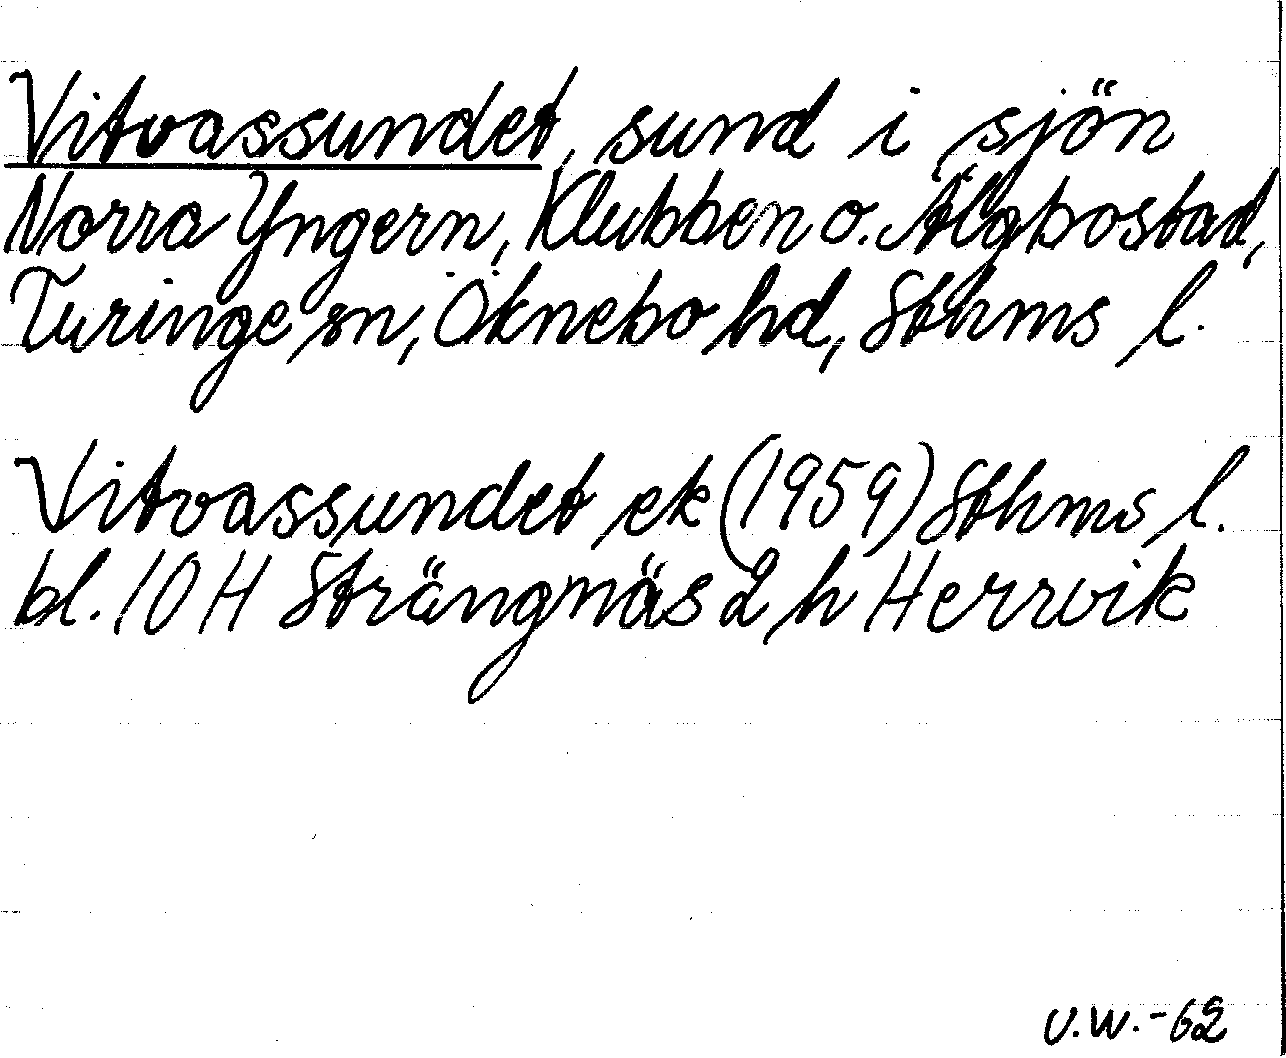 Vitvassundet, sund i sjön
Norra Yngern, Klubben o. Älgbostad,
Turinge sn, Öknebo hd, Sthms l.
Vitvassundet ek (1959) Sthms l.
bl. 10 H Strängnäs 2 h Herrvik
U.W.-62